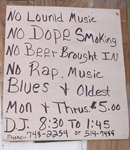 No Lounld Music
No Dope Smoking
No Beer Brought IN
No Rap. Music
Blues & Oldest
Mon & Thrus. $5.00
D.J. 8:30 To 1:45
Phone-748-2254 or 514-7488